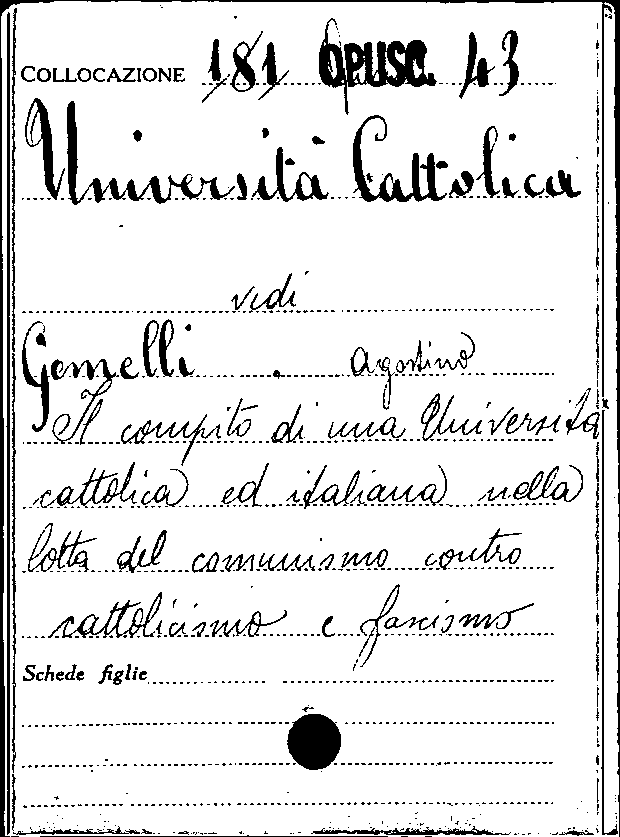 COLLOCAZIONE 181 OPUSC. 43
Università Cattolica
vedi
Gemelli . Agostino
Il compito di una Università
cattolica ed italiana nella
lotta del comunismo contro
cattolicismo e fascismo
Schede figlie